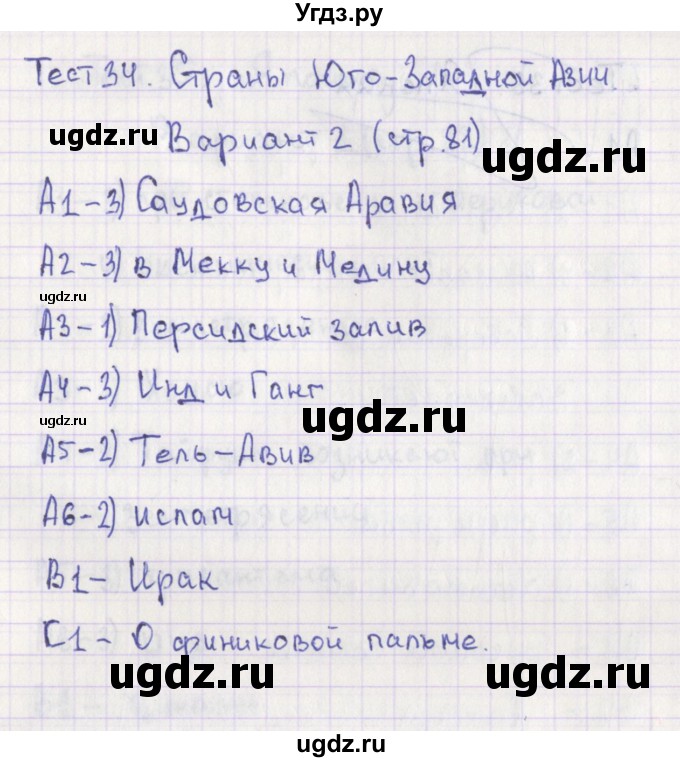 Угдз.ру
Тест 34. Страны Юго-Западной Азии
Вариант 2 (стр.81)
ugdz.ru
ugdz.ru
А1-3) Саудовская Аравия
А2-3) в Мекку и Медину
ugdz.ru
А3-1) Персидский залив
А4-3) Инд и Ганг
ugdz.ru
ugdz.ru
А5-2) Тель-Авив
А6-2) ислам
В1- Ирак
С1- О финиковой пальме.
ugdz.ru
ugdz.ru
ugdz.ru